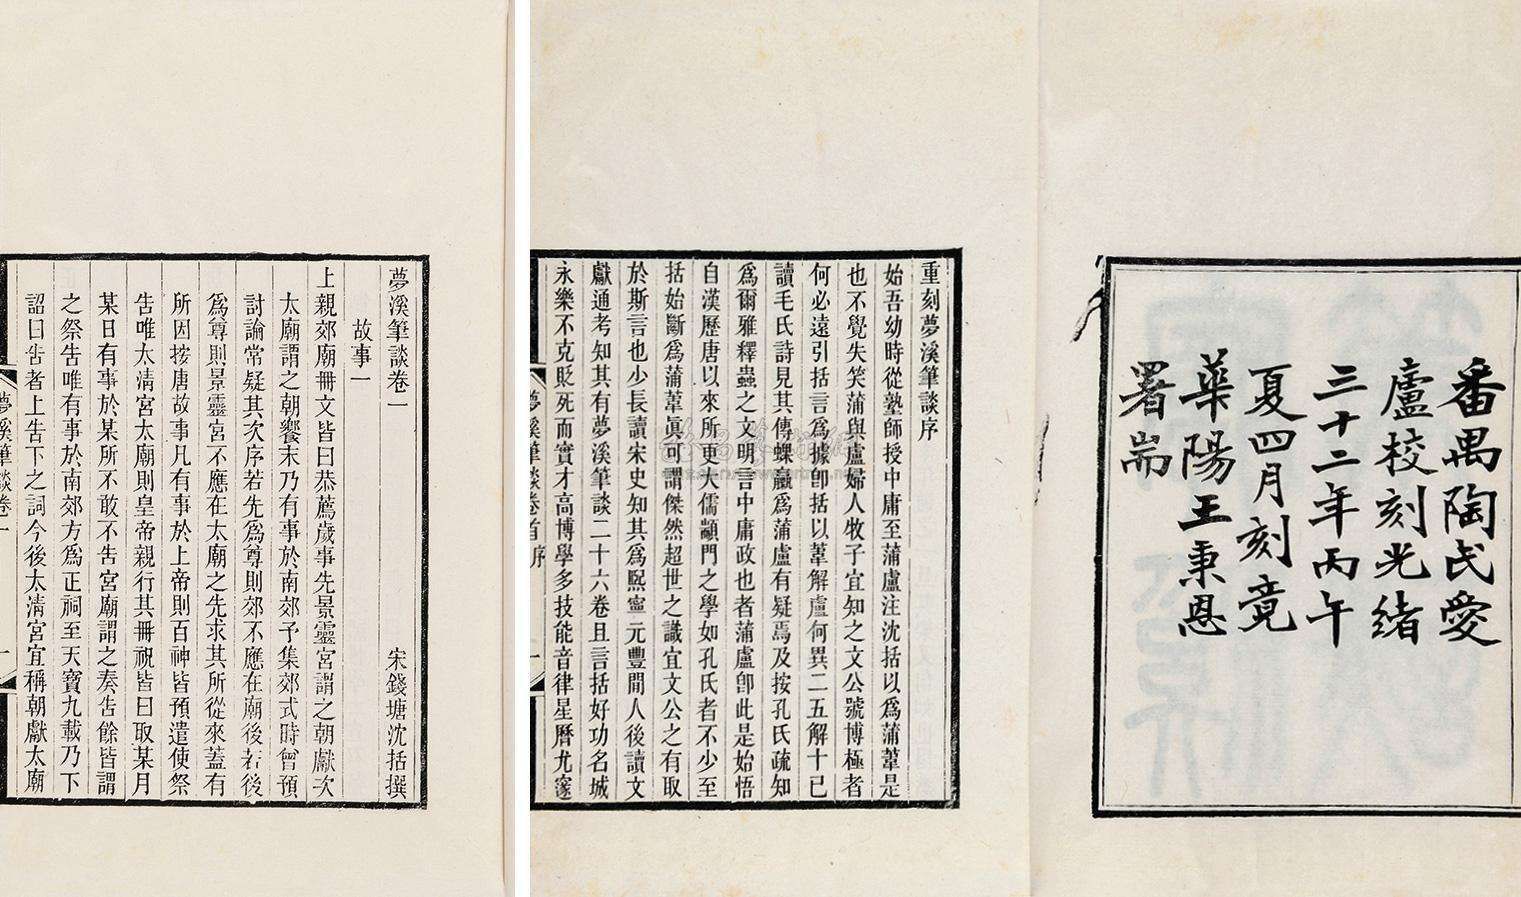 番禺陶氏愛
廬校刻光緒
三十二年丙午
夏四月刻竟
華陽王秉恩
署耑
重刻夢溪筆談序
始吾幼時從塾師授中庸至蒲盧注沈括以為蒲葦是
也不覺失笑蒲與盧婦人牧子宜知之文公號博極者
何必遠引括言為據卽括以葦解盧何異二五解十已
讀毛氏詩見其傳蜾蠃為蒲盧有疑焉及按孔氏疏知
為爾雅釋蟲之文明言中庸政也者蒲盧卽此是始悟
自漢歷唐以來所更大儒顓門之學如孔氏者不少至
括始斷為蒲葦眞可謂傑然超世之識宜文公之有取
於斯言也少長讀宋史知其為熈寧元豐間人後讀文
獻通考知其有夢溪筆談二十六卷且言括好功名城
永樂不克貶死而實才高博學多技能音律星曆尤邃
夢溪筆談卷首序 一
夢溪筆談卷一
宋錢塘沈括撰
故事一
上親郊廟冊文皆曰恭薦歲事先景靈宮謂之朝獻次
太廟謂之朝饗末乃有事於南郊予集郊式時曾預
討論常疑其次序若先為尊則郊不應在廟後若後
為尊則景靈宮不應在太廟之先求其所從來蓋有
所因按唐故事凡有事於上帝則百神皆預遣使祭
告唯太清宮太廟則皇帝親行其冊祝皆曰取某月
某日有事於某所不敢不告宮廟謂之奏告餘皆謂
之祭告唯有事於南郊方為正祠至天寶九載乃下
詔曰告者上告下之詞今後太清宮宜稱朝獻太廟
夢溪筆談卷一 一